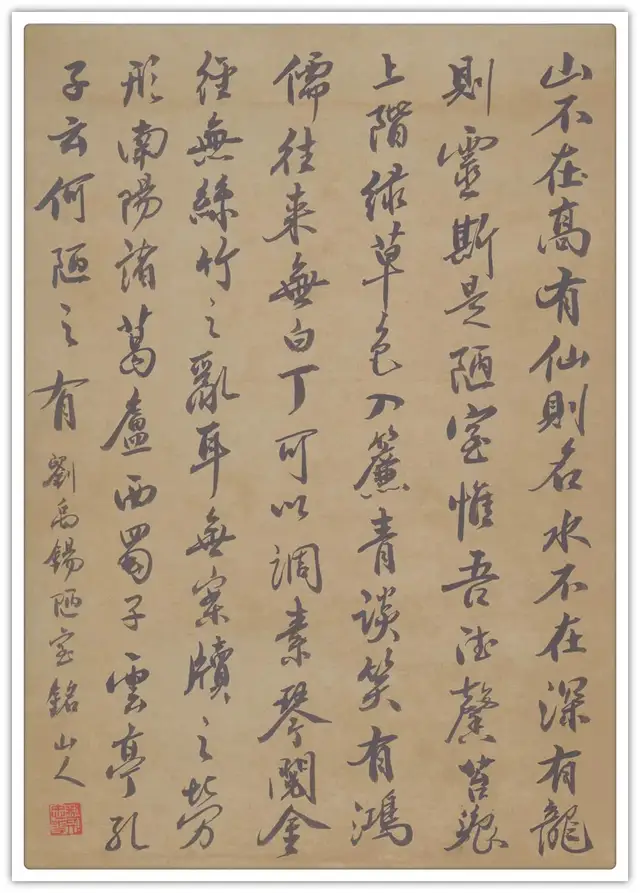 山不在高有仙則名水不在深有龍
則靈斯是陋室惟吾德馨苔痕
上階綠草色入簾青談笑有鴻
儒往来無白丁可以調素琴閱金
經無絲竹之亂耳無案牘之勞
形南陽諸葛廬西蜀子雲亭孔
子云何陋之有 劉禹錫陋室銘山人